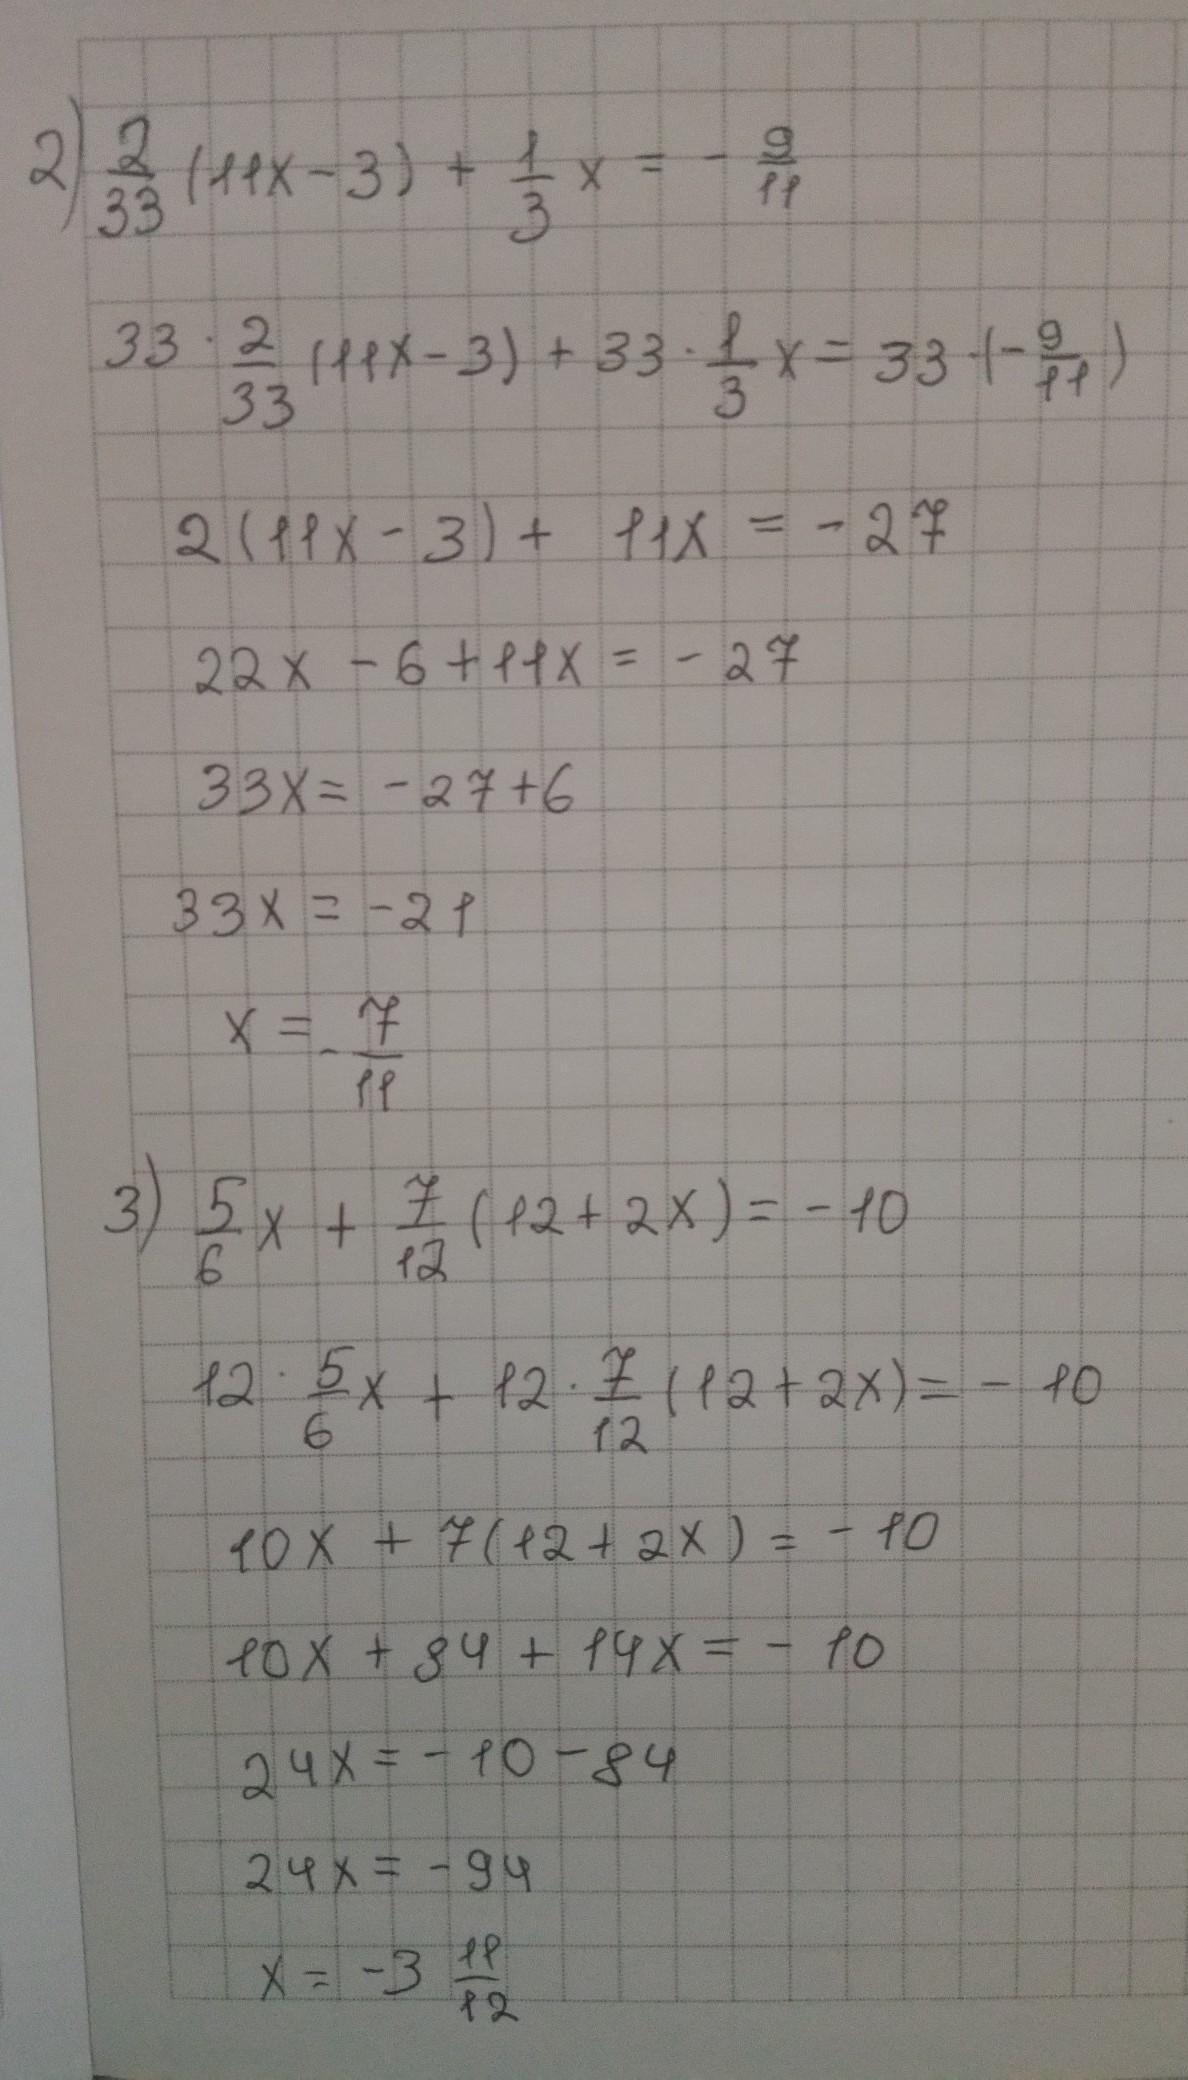 2) 2/33 (11x - 3) + 1/3 x = - 9/11
33 · 2/33 (11x - 3) + 33 · 1/3 x = 33 · (- 9/11)
2(11x - 3) + 11x = - 27
22x - 6 + 11x = - 27
33x = - 27 + 6
33x = - 21
x = - 7/11
3) 5/6 x + 7/12 (12 + 2x) = - 10
12 · 5/6 x + 12 · 7/12 (12 + 2x) = - 10
10x + 7(12 + 2x) = - 10
10x + 84 + 14x = - 10
24x = - 10 - 84
24x = - 94
x = - 3 11/12